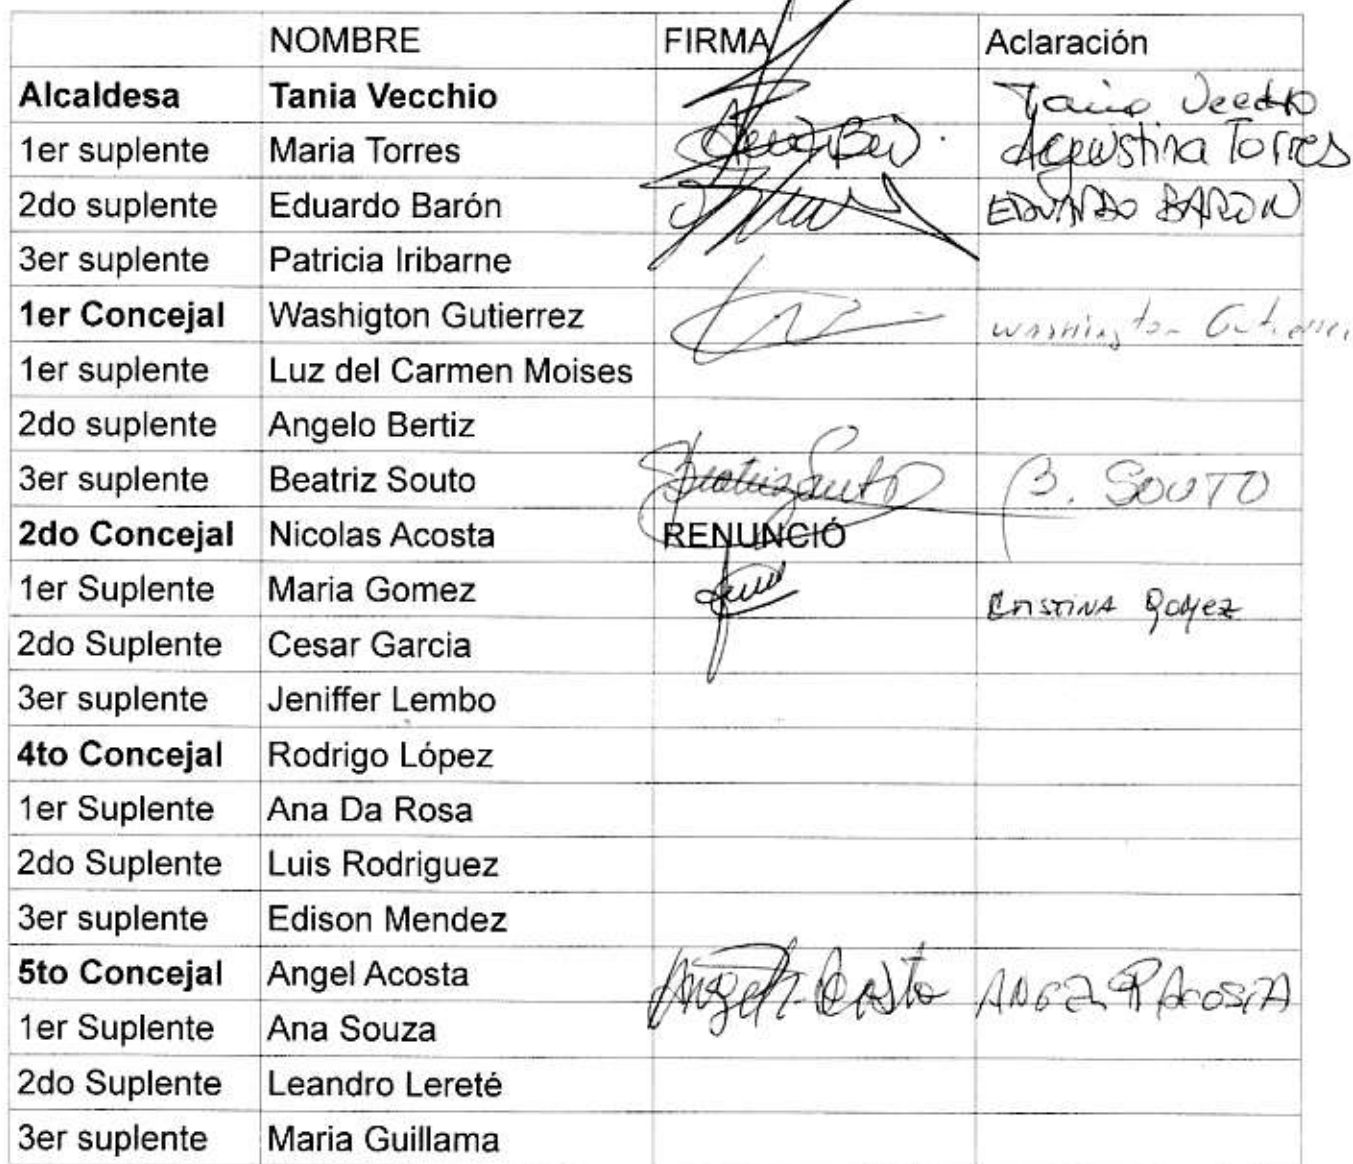 NOMBRE FIRMA Aclaración
Alcaldesa Tania Vecchio Tania Vecchio
1er suplente Maria Torres Agustina Torres
2do suplente Eduardo Barón EDUARDO BARON
3er suplente Patricia Iribarne
1er Concejal Washigton Gutierrez Washington Gutierrez
1er suplente Luz del Carmen Moises
2do suplente Angelo Bertiz
3er suplente Beatriz Souto Beatriz Souto B. SOUTO
2do Concejal Nicolas Acosta RENUNCIÓ
1er Suplente Maria Gomez CRISTINA Gomez
2do Suplente Cesar Garcia
3er suplente Jeniffer Lembo
4to Concejal Rodrigo López
1er Suplente Ana Da Rosa
2do Suplente Luis Rodriguez
3er suplente Edison Mendez
5to Concejal Angel Acosta Angel Acosta ANGEL R ACOSTA
1er Suplente Ana Souza
2do Suplente Leandro Lereté
3er suplente Maria Guillama